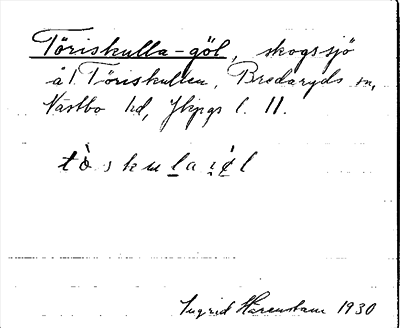 Töriskulla-göl, skogssjö
å 1 Töriskullen, Bredaryds sn,
Västbo hd, Jkpgs l. 11.
tò skulaiøl
Ingrid Härenstam 1930